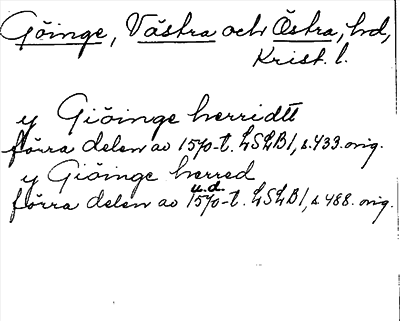 Göinge, Västra och Östra, hd,
Krist. l.
y Giöinge herridtt
förra delen av 1570-t. LSLB 1, s. 433. orig.
y Giöinge herred
u.d.
förra delen av 1570-t. LSLB 1, s 488. orig.